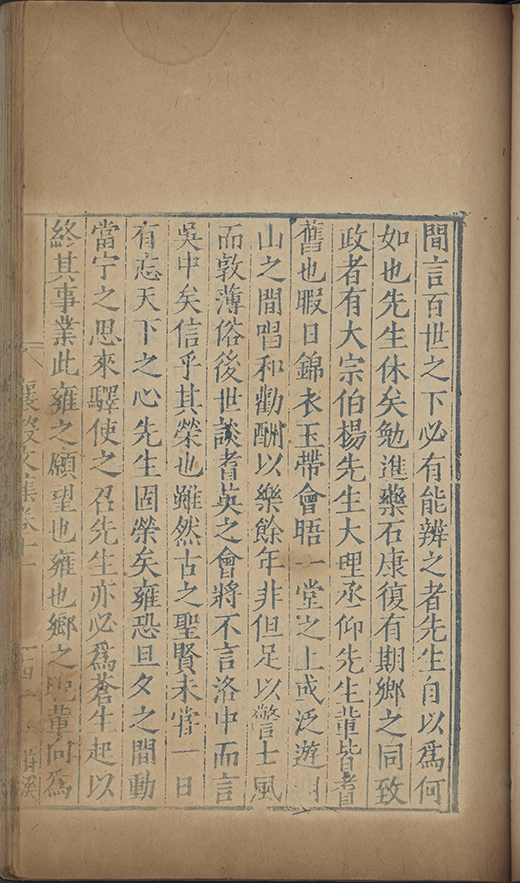 間言百世之下必有能辨之者先生自以爲何
如也先生休矣勉進藥石康復有期鄉之同致
政者有大宗伯楊先生大理丞仰先生輩皆耆
舊也暇日錦衣玉帶會晤一堂之上或泛遊湖
山之間唱和勸酬以樂餘年非但足以警士風
而敦薄俗後世談耆英之會將不言洛中而言
吳中矣信乎其榮也雖然古之聖賢未嘗一日
有忘天下之心先生固榮矣雍恐旦夕之間動
當宁之思來驛使之召先生亦必爲蒼生起以
終其事業此雍之願望也雍也鄉之晚輩向爲
襄毅文集卷十一